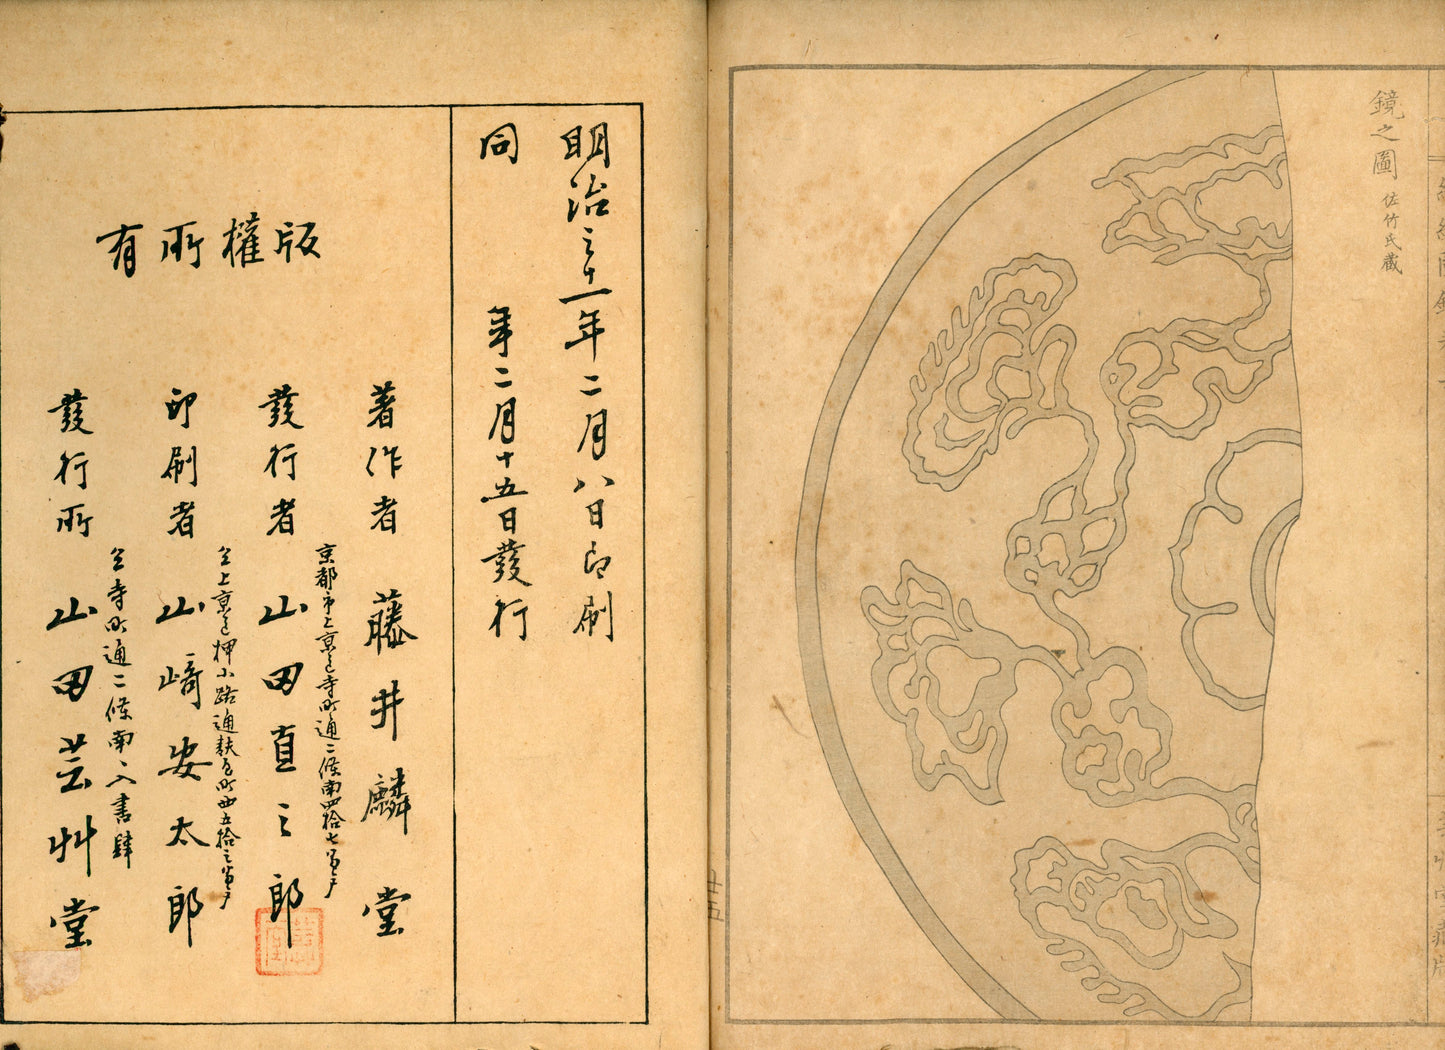 鏡之圖 佐竹氏藏
廿五
明治三十一年二月八日印刷
同 年二月十五日發行
版權所有
著作者 藤井麟堂
京都市上京區寺町通二條南四拾七番戸
發行者 山田直三郎
仝上京區押小路通麩屋町西五拾三番戸
印刷者 山﨑安太郎
仝寺町通二條南ヘ入書肆
發行所 山田芸艸堂